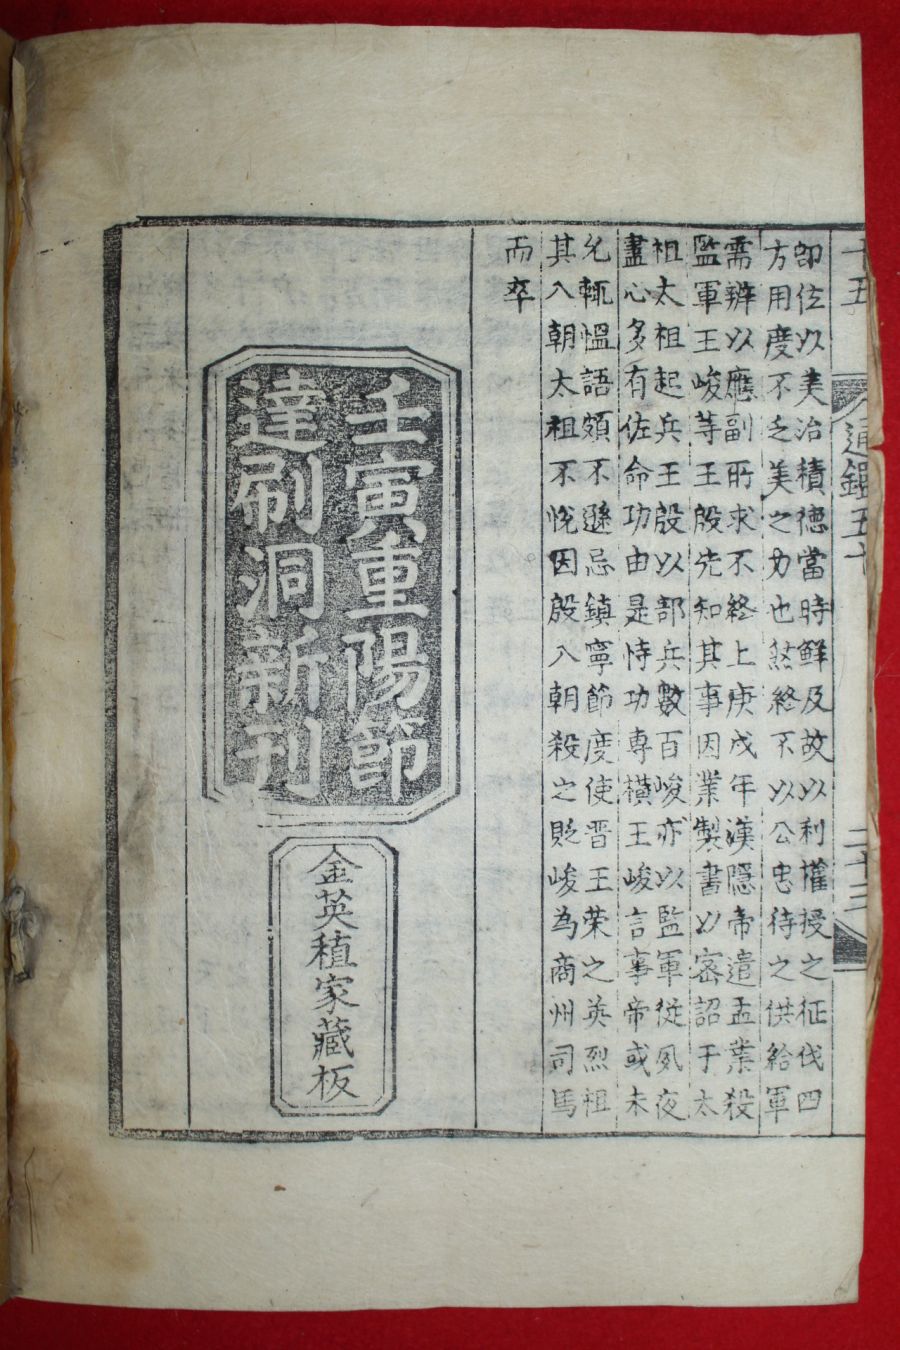 十五
通鑑五十
二十三
即位以美治積德當時鮮及故以利權授之征伐四
方用度不乏美之力也然終不以公忠待之供給軍
需辨以應副所求不終上庚戌年漢隱帝遣孟業殺
監軍王峻等王殷先知其事因業製書以密詔于太
祖太祖起兵王殷以部兵數百峻亦以監軍從夙夜
盡心多有佐命功由是恃功專橫王峻言事帝或未
允輒慍語頗不遜忌鎮寧節度使晋王荣之英烈沮
其入朝太祖不悅因殷入朝殺之貶峻為商州司馬
而卒
壬寅重陽節
達刷洞新刊
金英稙家藏板